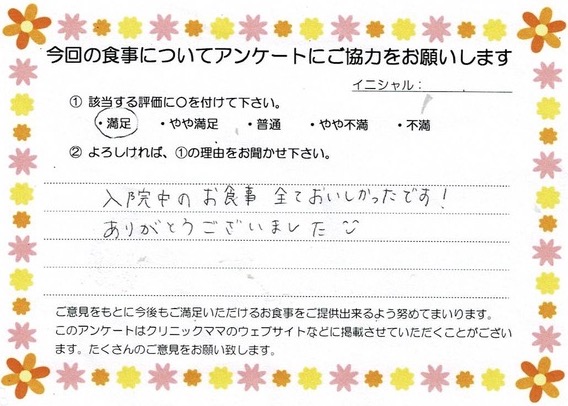 今回の食事についてアンケートにご協力をお願いします
イニシャル：
① 該当する評価に○を付けて下さい。
・満足 ・やや満足 ・普通 ・やや不満 ・不満
② よろしければ、①の理由をお聞かせ下さい。
入院中のお食事 全ておいしかったです！
ありがとうございました
ご意見をもとに今後もご満足いただけるお食事をご提供出来るよう努めてまいります。
このアンケートはクリニックママのウェブサイトなどに掲載させていただくことがござい
ます。たくさんのご意見をお願い致します。